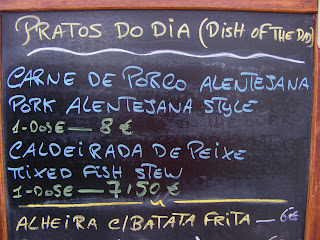 PRATOS DO DIA (DISH OF THE DAY)
CARNE DE PORCO ALENTEJANA
PORK ALENTEJANA STYLE
1-DOSE — 8 €
CALDEIRADA DE PEIXE
MIXED FISH STEW
1-DOSE — 7,50 €
ALHEIRA C/BATATA FRITA — 6€